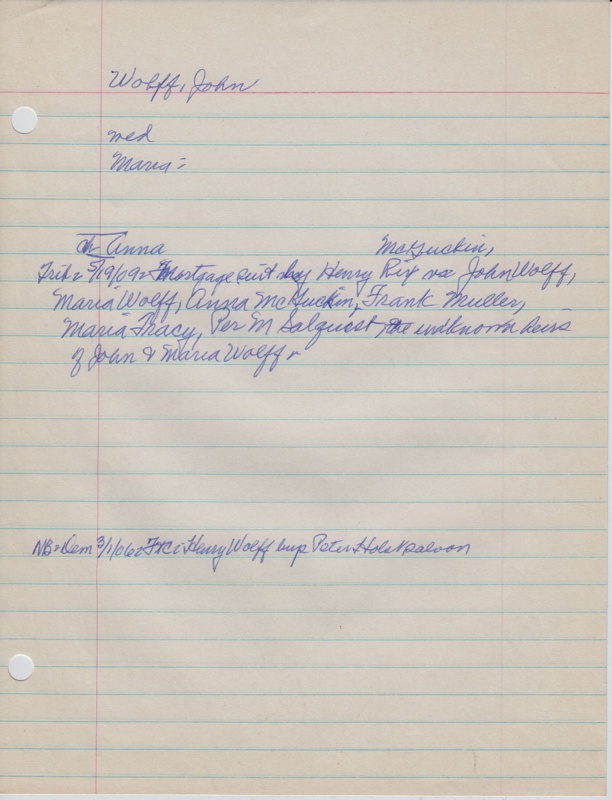 Wolff, John
wed
Maria =
ch Anna McGuckin,
Trib = 5/19/69 = Mortgage suit by Henry Rix vs John Wolff,
Maria Wolff, Anna McGuckin, Frank Muller,
Maria Tracy, Per M Salquest, the unknown heirs
of John & Maria Wolff
NB = Dem 3/1/06 = Henry Wolff buys Peter Holst saloon